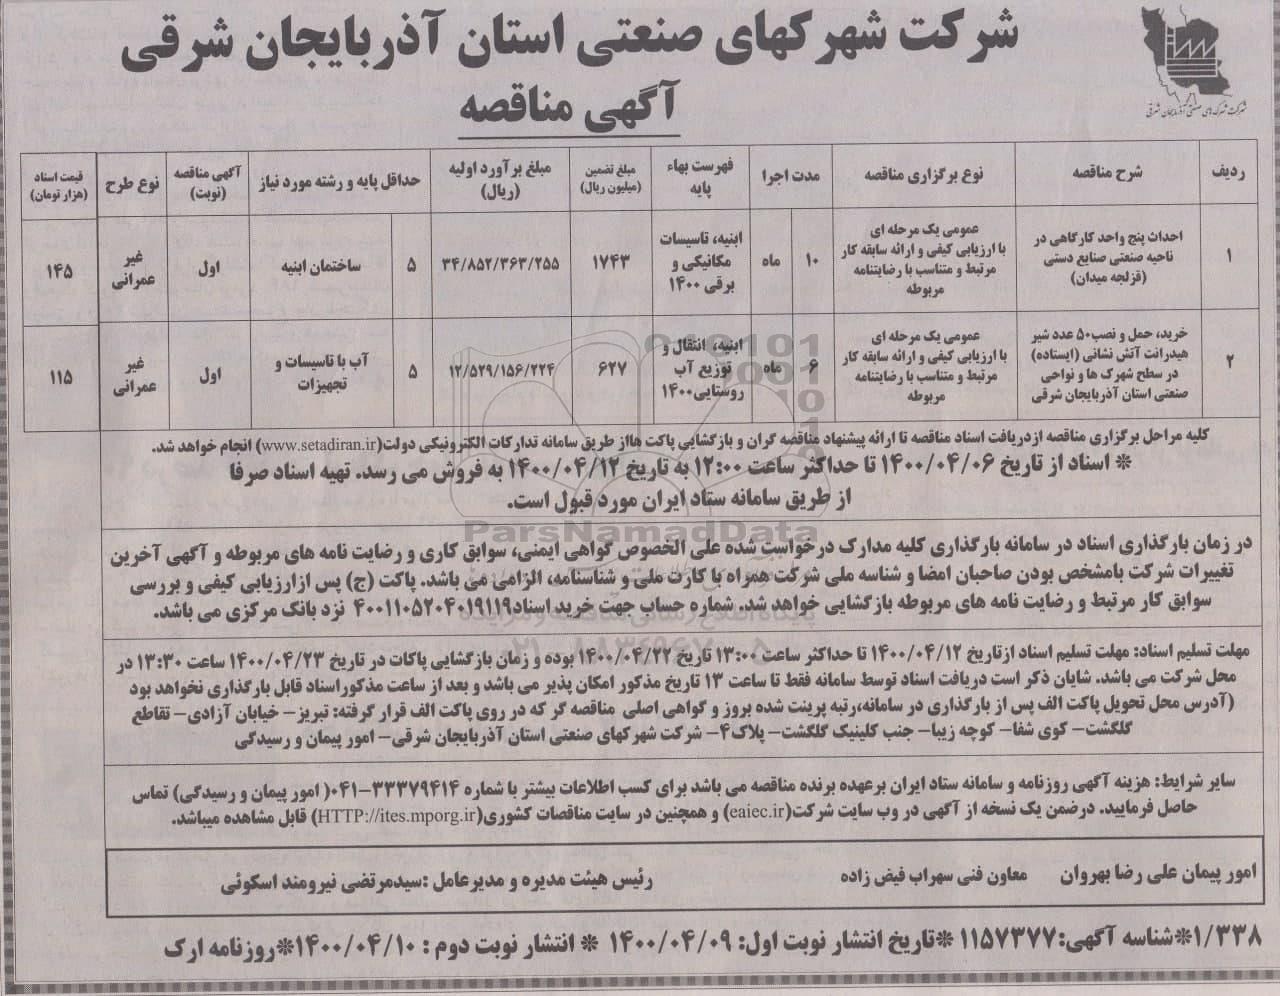 شرکت شهرکهای صنعتی استان آذربایجان شرقی
شرکت شهرک های صنعتی آذربایجان شرقی
آگهی مناقصه
ردیف
شرح مناقصه
نوع برگزاری مناقصه
مدت اجرا
فهرست بهاء
پایه
مبلغ تضمین
(میلیون ریال)
مبلغ برآورد اولیه
(ریال)
حداقل پایه و رشته مورد نیاز
آگهی مناقصه
(نوبت)
نوع طرح
قیمت اسناد
(هزار تومان)
۱
احداث پنج واحد کارگاهی در
ناحیه صنعتی صنایع دستی
(قزلجه میدان)
عمومی یک مرحله ای
با ارزیابی کیفی و ارائه سابقه کار
مرتبط و متناسب با رضایتنامه
مربوطه
۱۰
ماه
ابنیه، تاسیسات
مکانیکی و
برقی ۱۴۰۰
۱۷۴۳
۳۴/۸۵۲/۳۶۳/۲۵۵
۵
ساختمان ابنیه
اول
غیر
عمرانی
۱۴۵
۲
خرید، حمل و نصب۵۰ عدد شیر
هیدرانت آتش نشانی (ایستاده)
در سطح شهرک ها و نواحی
صنعتی استان آذربایجان شرقی
عمومی یک مرحله ای
با ارزیابی کیفی و ارائه سابقه کار
مرتبط و متناسب با رضایتنامه
مربوطه
۶
ماه
ابنیه، انتقال و
توزیع آب
روستایی۱۴۰۰
۶۲۷
۱۲/۵۲۹/۱۵۶/۲۲۴
۵
آب با تاسیسات و
تجهیزات
اول
غیر
عمرانی
۱۱۵
کلیه مراحل برگزاری مناقصه ازدریافت اسناد مناقصه تا ارائه پیشنهاد مناقصه گران و بازگشایی پاکت هااز طریق سامانه تدارکات الکترونیکی دولت(www.setadiran.ir) انجام خواهد شد.
* اسناد از تاریخ ۱۴۰۰/۰۴/۰۶ تا حداکثر ساعت ۱۲:۰۰ به تاریخ ۱۴۰۰/۰۴/۱۲ به فروش می رسد. تهیه اسناد صرفا
از طریق سامانه ستاد ایران مورد قبول است.
ParsNamadData
در زمان بارگذاری اسناد در سامانه بارگذاری کلیه مدارک درخواست شده علی الخصوص گواهی ایمنی، سوابق کاری و رضایت نامه های مربوطه و آگهی آخرین
تغییرات شرکت بامشخص بودن صاحبان امضا و شناسه ملی شرکت همراه با کارت ملی و شناسنامه، الزامی می باشد. پاکت (ج) پس ازارزیابی کیفی و بررسی
سوابق کار مرتبط و رضایت نامه های مربوطه بازگشایی خواهد شد. شماره حساب جهت خرید اسناد۴۰۰۱۱۰۵۲۰۴۰۱۹۱۱۹ نزد بانک مرکزی می باشد.
پایگاه اطلاع رسانی مناقصه و مزایده
۰۲۱-۸۸۳۴۹۶۷۰-۵
مهلت تسلیم اسناد: مهلت تسلیم اسناد ازتاریخ ۱۴۰۰/۰۴/۱۲ تا حداکثر ساعت ۱۳:۰۰ تاریخ ۱۴۰۰/۰۴/۲۲ بوده و زمان بازگشایی پاکات در تاریخ ۱۴۰۰/۰۴/۲۳ ساعت ۱۳:۳۰ در
محل شرکت می باشد. شایان ذکر است دریافت اسناد توسط سامانه فقط تا ساعت ۱۳ تاریخ مذکور امکان پذیر می باشد و بعد از ساعت مذکوراسناد قابل بارگذاری نخواهد بود
(آدرس محل تحویل پاکت الف پس از بارگذاری در سامانه،رتبه پرینت شده بروز و گواهی اصلی مناقصه گر که در روی پاکت الف قرار گرفته: تبریز– خیابان آزادی– تقاطع
گلگشت– کوی شفا– کوچه زیبا– جنب کلینیک گلگشت– پلاک۴– شرکت شهرکهای صنعتی استان آذربایجان شرقی– امور پیمان و رسیدگی
سایر شرایط: هزینه آگهی روزنامه و سامانه ستاد ایران برعهده برنده مناقصه می باشد برای کسب اطلاعات بیشتر با شماره ۳۳۳۷۹۴۱۴–۰۴۱( امور پیمان و رسیدگی) تماس
حاصل فرمایید. درضمن یک نسخه از آگهی در وب سایت شرکت(eaiec.ir) و همچنین در سایت مناقصات کشوری(HTTP://ites.mporg.ir) قابل مشاهده میباشد.
امور پیمان علی رضا بهروان   معاون فنی سهراب فیض زاده   رئیس هیئت مدیره و مدیرعامل :سیدمرتضی نیرومند اسکوئی
۱/۳۳۸*شناسه آگهی:۱۱۵۷۳۷۷ *تاریخ انتشار نوبت اول: ۱۴۰۰/۰۴/۰۹ * انتشار نوبت دوم : ۱۴۰۰/۰۴/۱۰*روزنامه ارک